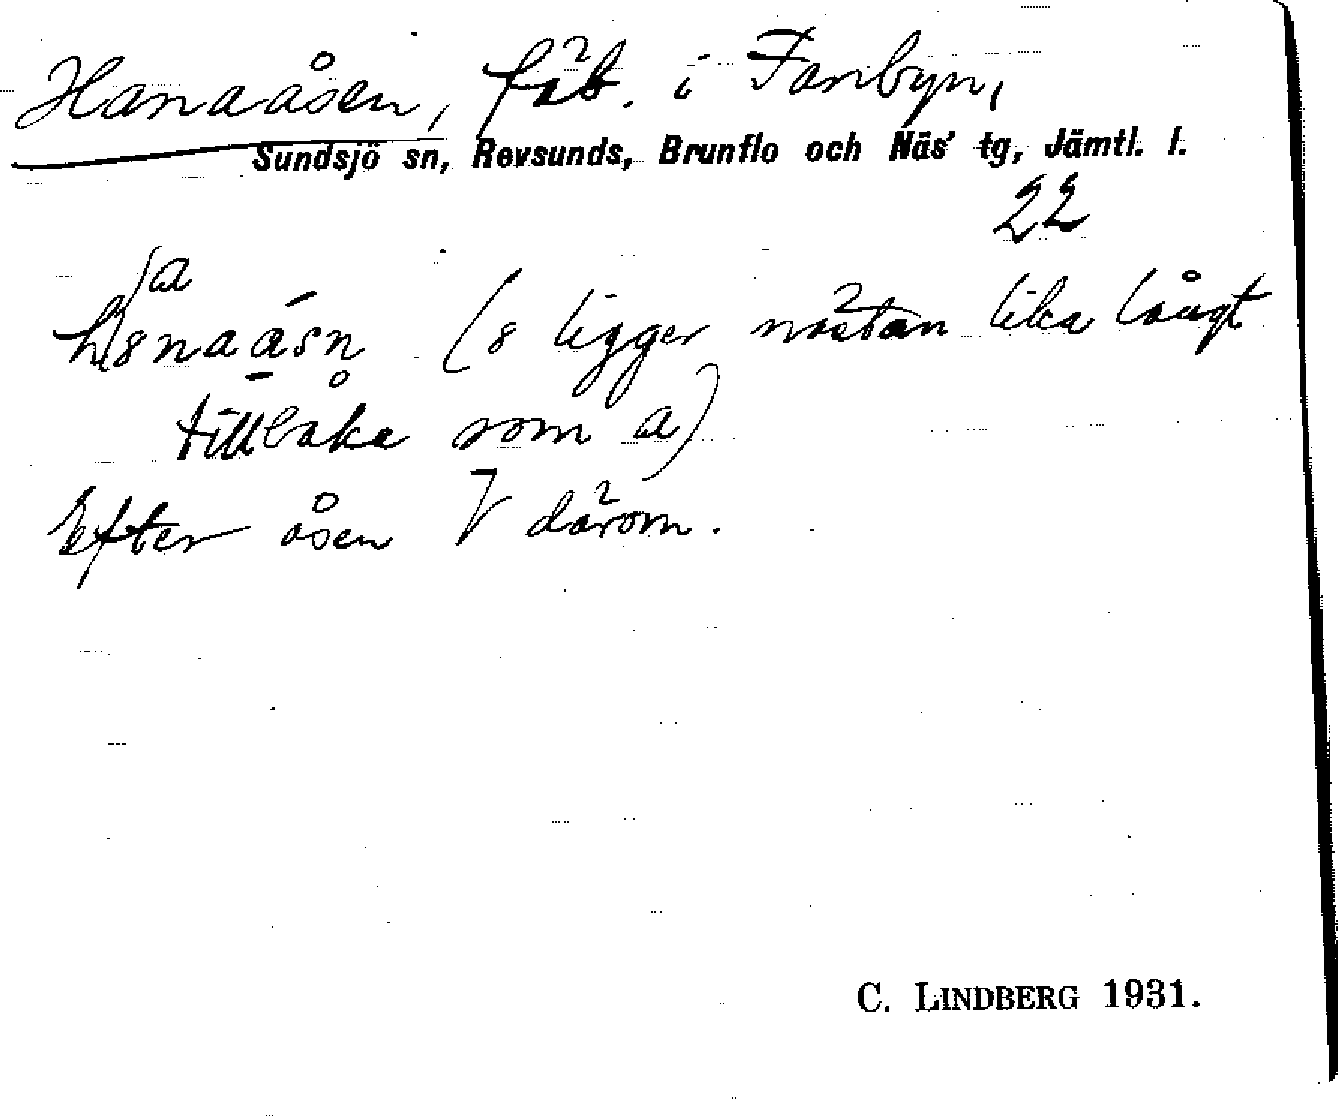 Hanaåsen, fäb. i Fanbyn,
Sundsjö sn, Revsunds, Brunflo och Näs' tg, Jämtl. l.
22
(s ligger nästan lika långt
tillbaka som a)
Efter åsen V därom.
C. LINDBERG 1931.